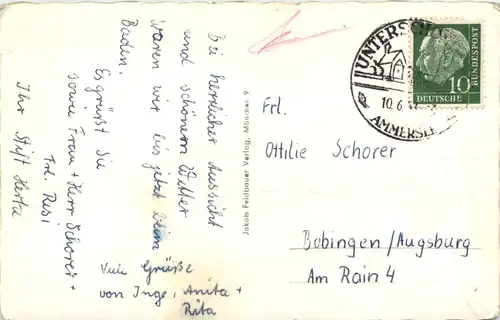 Bei herrlicher Aussicht
und schönem Wetter
waren wir bis jetzt beim
Baden.
Es grüßt Sie
sowie Frau + Herr Schorer +
Frl. Rusi
Ihr Stift Herta
Viele Grüße
von Inge, Anita +
Rita
Jakob Feldbauer Verlag, München 9
UNTERSCHON
10.6.
AMMERSEE
DEUTSCHE
BUNDESPOST
10
Frl.
Ottilie Schorer
Bobingen/Augsburg
Am Rain 4